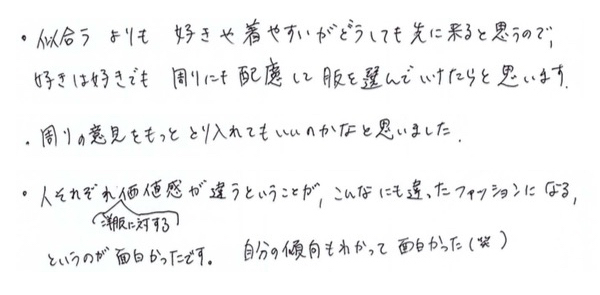 ・似合う よりも 好きや着やすいがどうしても先に来ると思うので、
好きは好きでも 周りにも配慮して服を選んでいけたらと思います.
・周りの意見をもっととり入れてもいいのかなと思いました.
・人それぞれ価値感が違うということが, こんなにも違ったファッションになる,
洋服に対する
というのが面白かったです。 自分の傾向もわかって面白かった(笑)